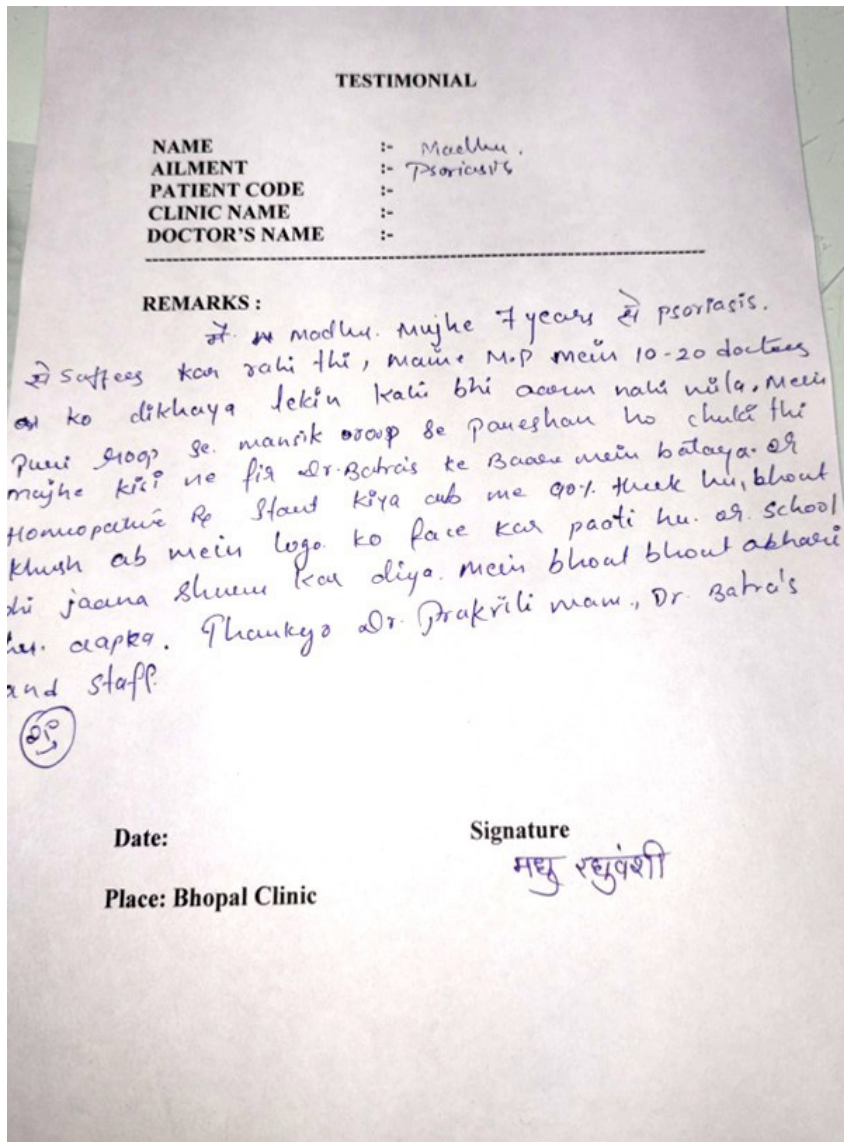 TESTIMONIAL
NAME :- Madhu.
AILMENT :- Psoriasis
PATIENT CODE :-
CLINIC NAME :-
DOCTOR'S NAME :-
REMARKS :
मैं madhu. Mujhe 7 years से psoriasis.
से Suffees kar rahi thi, maine M.P mein 10-20 doctees
ko dikhaya lekin kahi bhi aaram nahi mila. Mein
Puri roop se. mansik roop se pareshan ho chuki thi
mujhe kisi ne fir Dr. Batra's ke Baare mein bataya. or
Homeopathic Rx Start kiya ab me 90% theek hu, bhout
khush ab mein logo. ko face kar paati hu. or. School
bhi jaana Shuru kar diya. mein bhout bhout abhari
hu. aapka. Thankyo Dr. Prakriti mam., Dr. Batra's
and staff.
Date:
Signature
मधु रघुवंशी
Place: Bhopal Clinic